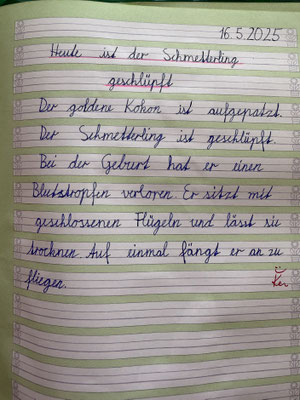 16.5.2025
Heute ist der Schmetterling
geschlüpft
Der goldene Kokon ist aufgeplatzt.
Der Schmetterling ist geschlüpft.
Bei der Geburt hat er einen
Blutstropfen verloren. Er sitzt mit
geschlossenen Flügeln und lässt sie
trocknen. Auf einmal fängt er an zu
fliegen.